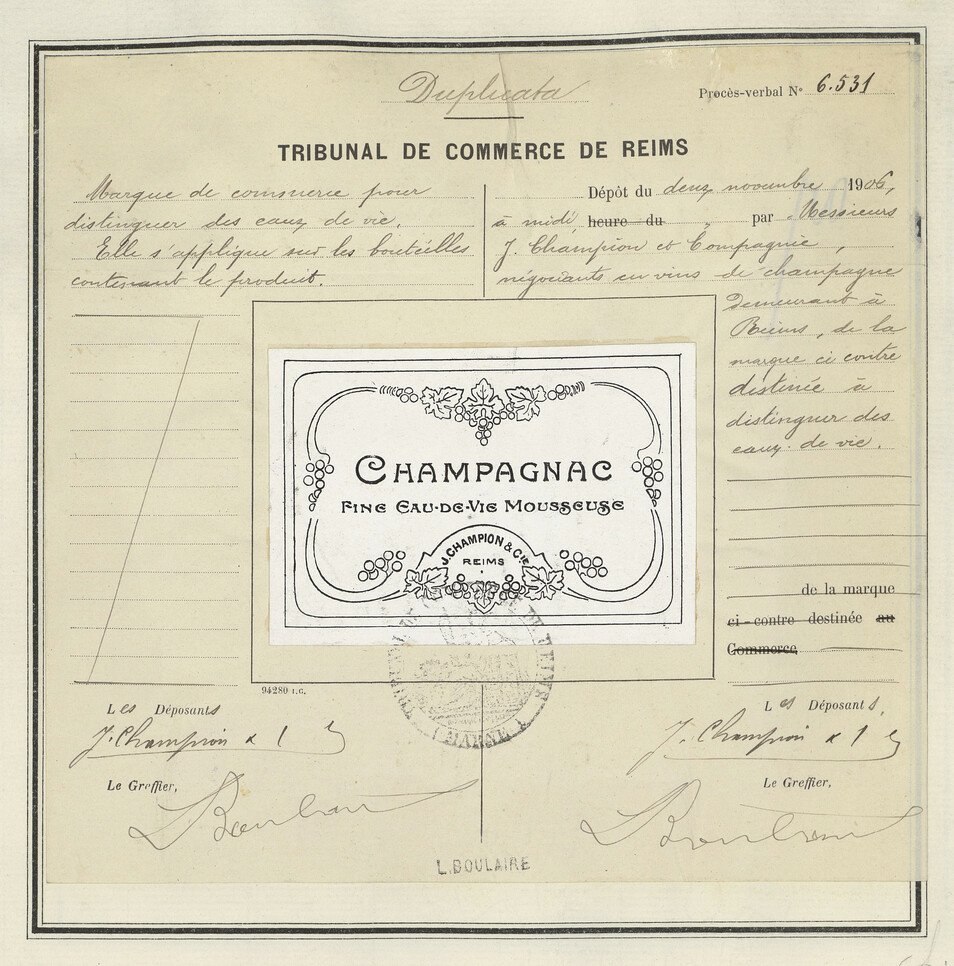 Duplicata
Procès-verbal N° 6.531
TRIBUNAL DE COMMERCE DE REIMS
Marque de commerce pour
distinguer des eaux de vie.
Elle s'applique sur les bouteilles
contenant le produit.
Dépôt du deux novembre 1906,
à midi, heure du " par Messieurs
J. Champion et Compagnie,
négociants en vins de champagne
demeurant à
Reims, de la
marque ci contre
destinée à
distinguer des
eaux de vie.
CHAMPAGNAC
FINE EAU-DE-VIE MOUSSEUSE
J. CHAMPION & CIE
REIMS
de la marque
ci-contre destinée au
Commerce
94280 I.C.
Les Déposants
J. Champion &
Le Greffier,
Les Déposants,
J. Champion &
Le Greffier,
(MARNE)
L. BOULAIRE